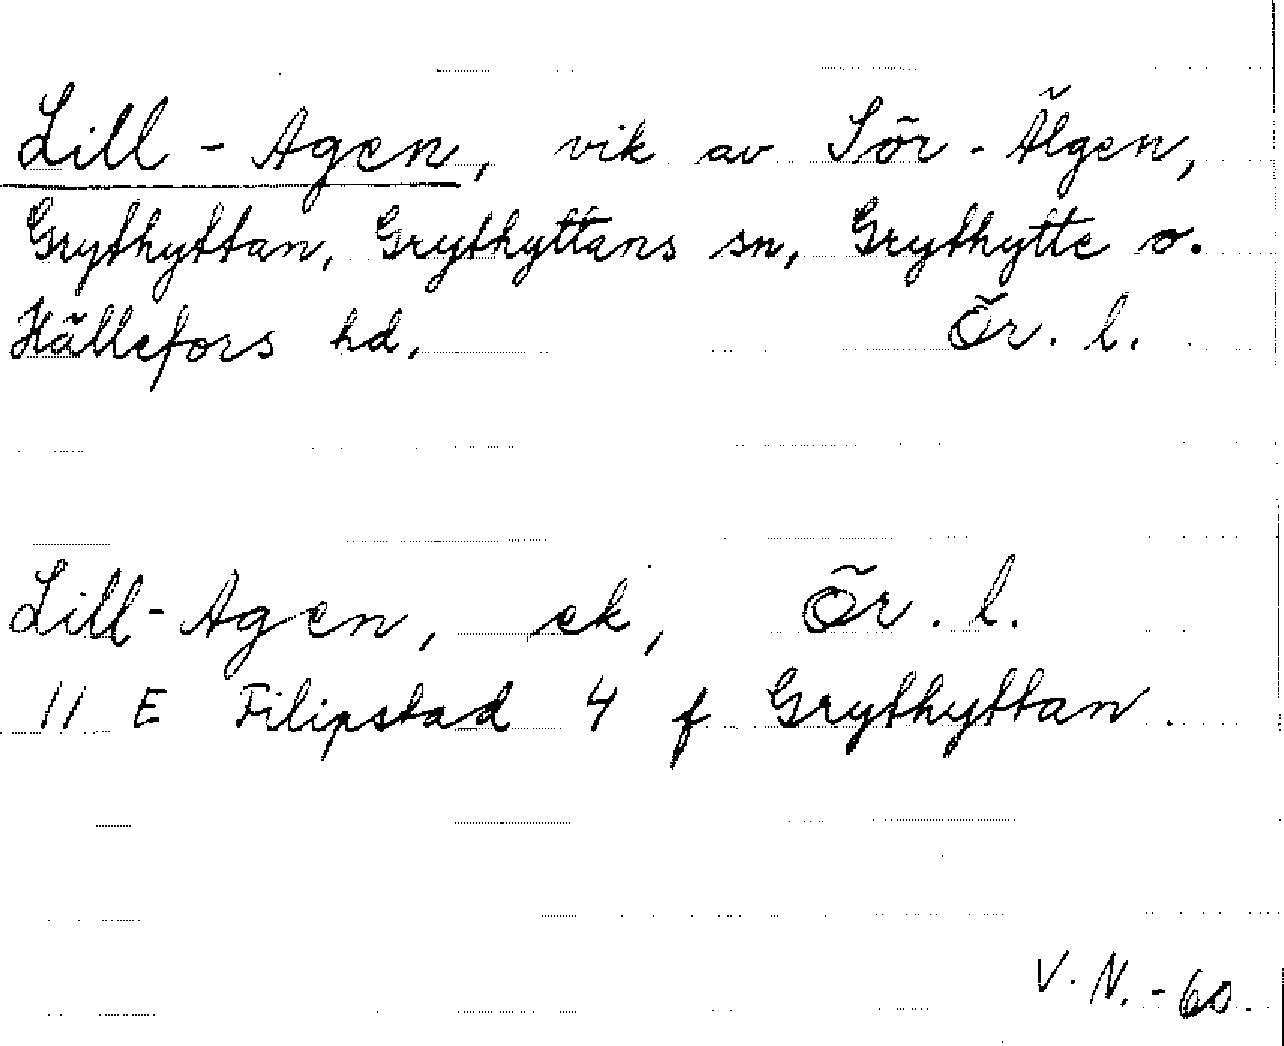 Lill-Agen, vik av Sör-Älgen,
Grythyttan, Grythyttans sn, Grythytte o.
Hällefors hd. Ör. l.
Lill-Agen, ek, Ör. l.
11 E Filipstad 4 f Grythyttan.
V. N. -60.